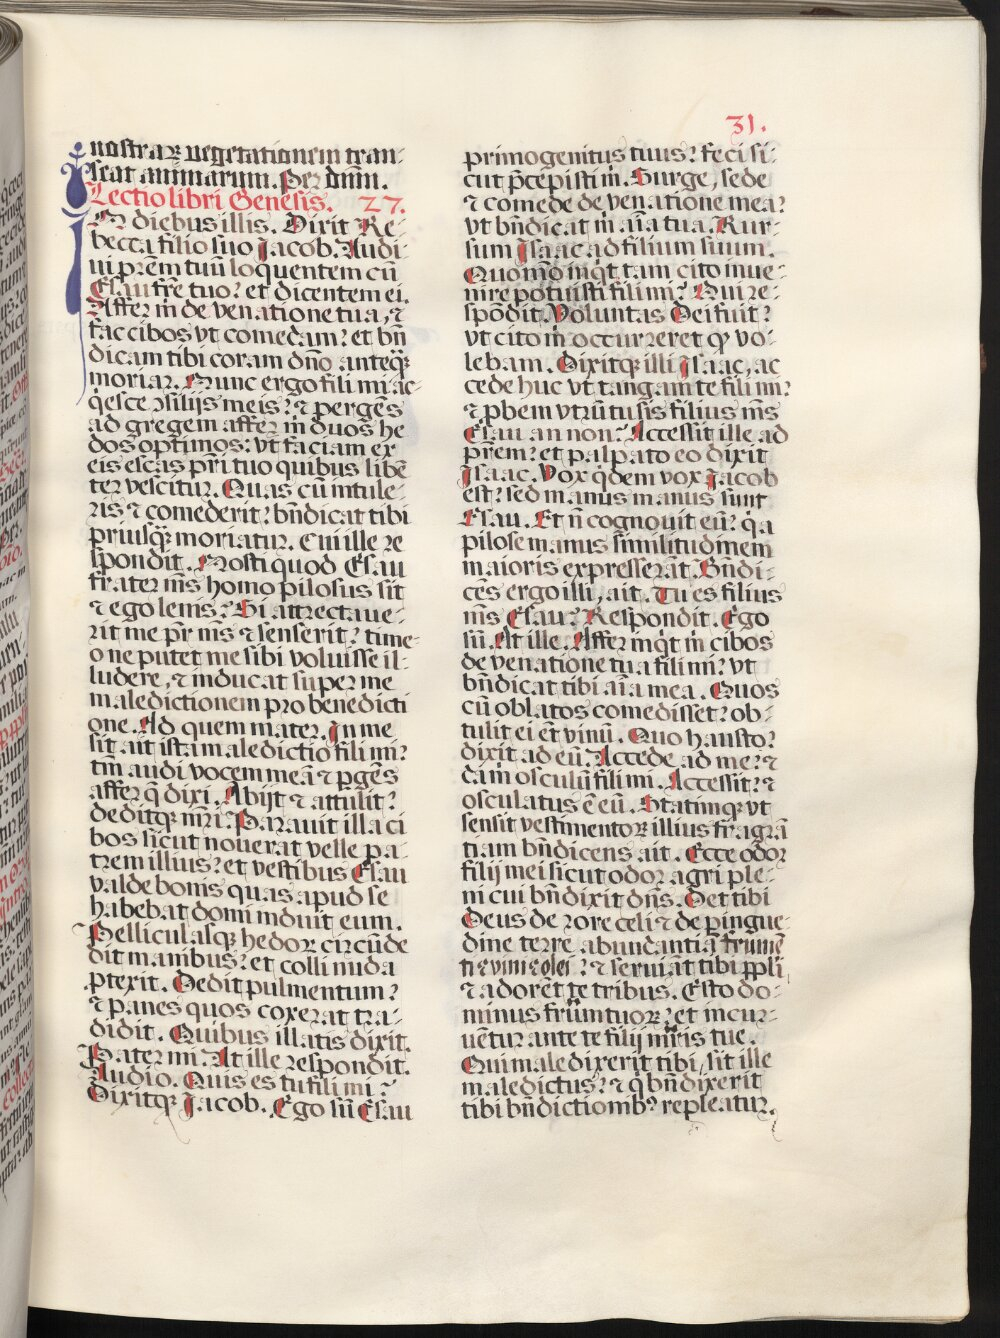 31.
nostraꝝ vegetationem tran-
seat animarum. Per dnm̄.
Lectio libri Genesis. 27.
In diebus illis. Dixit Re-
becca filio suo Jacob. Audi-
ui prēm tuū loquentem cū
Esau frē tuo: et dicentem ei.
Affer m̄ de venatione tua, ⁊
fac cibos vt comedam: et bn̄
dicam tibi coram dn̄o anteqꝫ
moriar. Nunc ergo fili mi ac-
q̄esce ↄsilijs meis: ⁊ pergēs
ad gregem affer m̄ duos he
dos optimos: vt faciam ex
eis escas pri tuo quibus libē
ter vescitur. Quas cū intule-
ris ⁊ comederit: bn̄dicat tibi
priusqꝫ moriatur. Cui ille re
spondit. Nosti quod Esau
frater ms̄ homo pilosus sit
⁊ ego lenis: Si attrectaue-
rit me pr̄ ms̄ ⁊ senserit: time-
o ne putet me sibi voluisse il-
ludere, ⁊ inducat super me
maledictionem pro benedicti
one. Ad quem mater. In me
sit ait ista maledictio fili mi:
tm̄ audi vocem meā ⁊ pgēs
affer q̄ dixi. Abijt ⁊ attulit:
deditqꝫ mr̄i. Parauit illa ci
bos sicut nouerat velle pa-
trem illius: et vestibus Esau
valde bonis quas apud se
habebat domi induit eum.
Pelliculasqꝫ hedoꝝ circūde
dit manibus: et colli nuda
ptexit. Dedit pulmentum:
⁊ panes quos coxerat tra-
didit. Quibus illatis dixit.
Pater mi. At ille respondit.
Audio. Quis es tu fili mi?
Dixitqꝫ Jacob. Ego sū Esau
primogenitus tuus: feci si-
cut p̄cepisti m̄. Surge, sede
⁊ comede de venatione mea:
vt bn̄dicat m̄ aīa tua. Rur-
sum Isaac ad filium suum.
Quomō inq̄t tam cito inue-
nire potuisti fili mi? Qui re-
spōdit. Voluntas Dei fuit:
vt cito m̄ occurreret qđ vo-
lebam. Dixitqꝫ illi Isaac, ac
cede huc vt tangam te fili mi:
⁊ pbem vtrū tu sis filius ms̄
Esau an non. Accessit ille ad
prēm: et palpato eo dixit
Isaac. Vox q̄dem vox Jacob
est: sed manus manus sunt
Esau. Et n̄ cognouit eū: q̄a
pilose manus similitudinem
maioris expresserāt. Bn̄di-
cēs ergo illi, ait. Tu es filius
ms̄ Esau? Respondit. Ego
sū. At ille. Affer inq̄t m̄ cibos
de venatione tua fili mi: vt
bn̄dicat tibi aīa mea. Quos
cū oblatos comedisset: ob-
tulit ei et vinū. Quo hausto:
dixit ad eū. Accede ad me: ⁊
da m̄ osculū fili mi. Accessit: ⁊
osculatus ē eū. Statimqꝫ vt
sensit vestimentoꝝ illius fragrā
tiam bn̄dicens ait. Ecce odor
filij mei sicut odor agri ple-
ni cui bn̄dixit dn̄s. Det tibi
Deus de rore celi ⁊ de pingue-
dine terre abundantiā frumē
ti ⁊ vini ⁊ olei: ⁊ seruiāt tibi ppli
⁊ adorēt te tribus. Esto do-
minus frūm tuoꝝ: et incur-
uētur ante te filij mr̄is tue.
Qui maledixerit tibi, sit ille
maledictus: ⁊ q̄ bn̄dixerit
tibi bn̄dictionibꝰ repleatur.